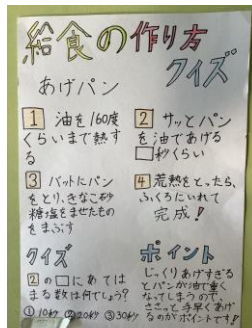 給食の作り方
クイズ
あげパン
1 油を160度
くらいまで熱す
る
2 サッとパン
を油であげる
□秒くらい
3 バットにパン
をとり、きなこ砂
糖塩をませたもの
をまぶす
4 荒熱をとったら、
ふくろにいれて
完成!
クイズ
2の□にあては
まる数は何でしょう?
①10秒 ②20秒 ③30秒
ポイント
じっくりあげすぎる
とパンが油で重く
なってしまうので、
さささっと手早くあげ
るのがポイントです!